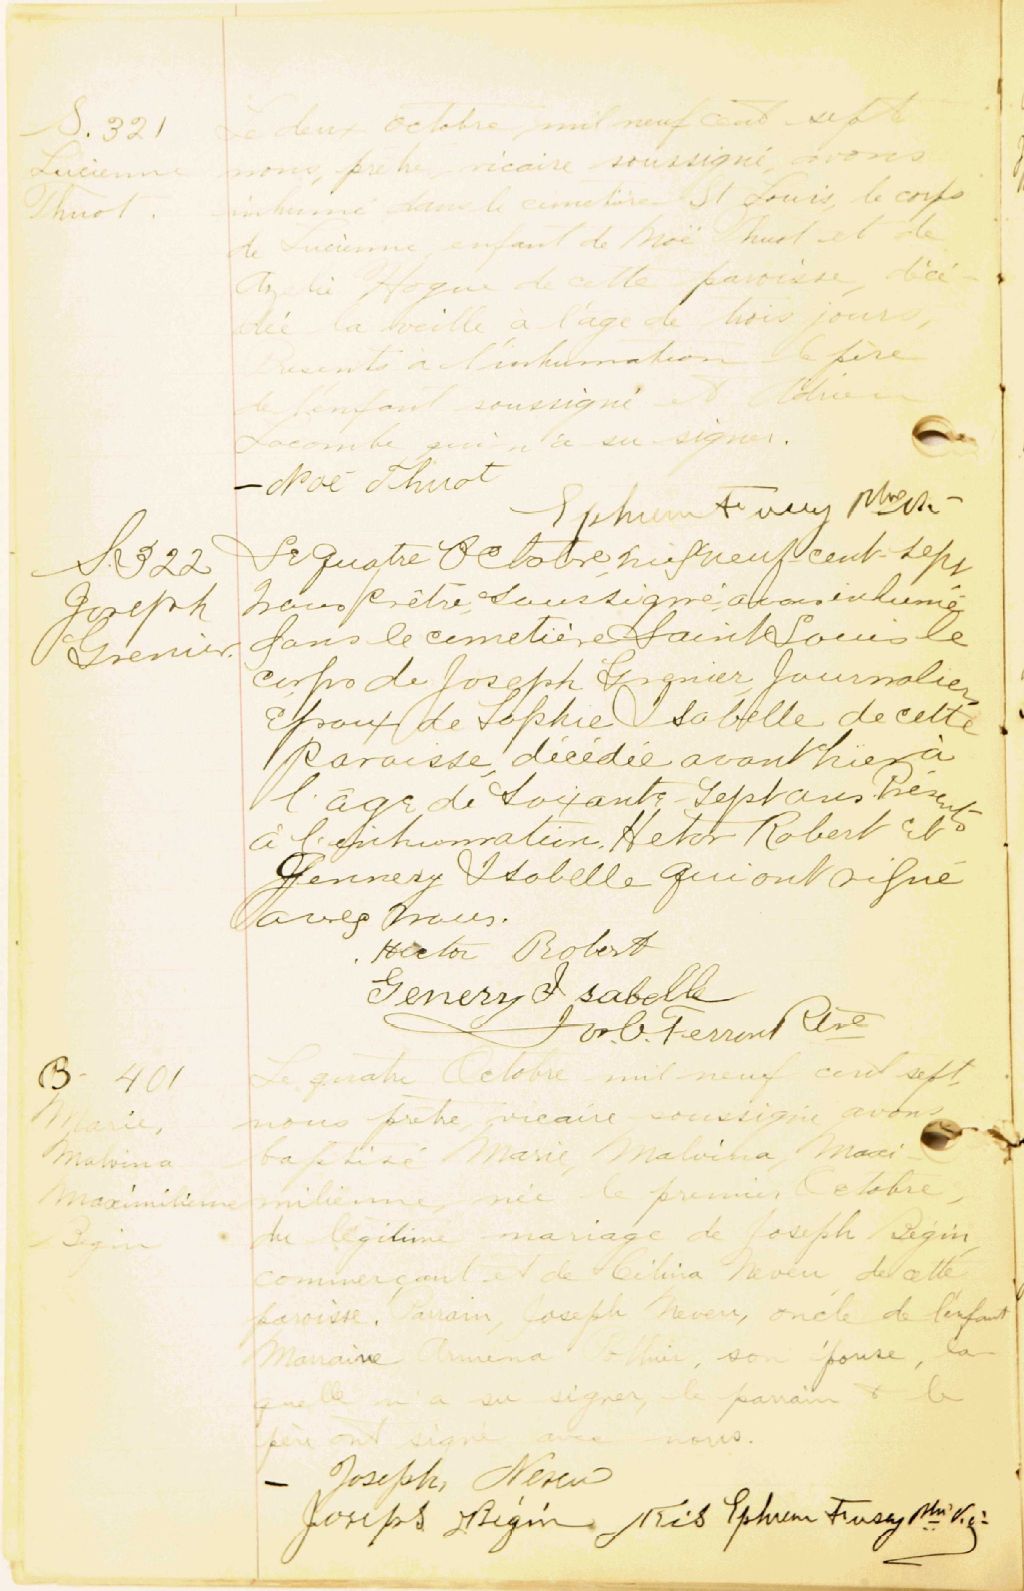 S. 321
Lucienne
Thuot.
Le deux octobre mil neuf cent sept
nous, prêtre vicaire soussigné, avons
inhumé dans le cimetière St Louis, le corps
de Lucienne enfant de Noë Thuot et de
Azelie Hogue de cette paroisse, décé-
dée la veille à l'âge de trois jours,
Présents à l'inhumation le père
de l'enfant soussigné et Adrien
Lacombe qui n'a su signer.
- Noé Thuot
Ephrem Fusey Ptre Vic
S. 322
Joseph
Grenier.
Le quatre Octobre mil neuf cent-sept
nous prêtre, soussigné, avons inhumé
dans le cemetière Saint Louis le
corps de Joseph Grenier, Journalier,
Epoux de Sophie Isabelle de cette
Paroisse, décédée avant hier à
l'âge de soixante-sept ans. Présents
à l'inhumation. Hetor Robert et
Gennery Isabelle qui ont signé
avec nous.
Hector Robert
Genery Isabelle
Ptre
B- 401
Marie,
Malvina
Maximilienne
Begin
Le quatre Octobre mil neuf cent sept,
nous prêtre, vicaire soussigné avons
baptisé Marie, Malvina, Maxi-
milienne, née le premier Octobre,
du légitime mariage de Joseph Begin,
commerçant et de Neveu de cette
paroisse. Parrain, Joseph Neveu, oncle de l'enfant
Marraine son épouse, la-
quelle n'a su signer, le parrain & le
père ont signé avec nous.
- Joseph, Neveu
Joseph Bégin Ephrem Fusey Ptre Vic